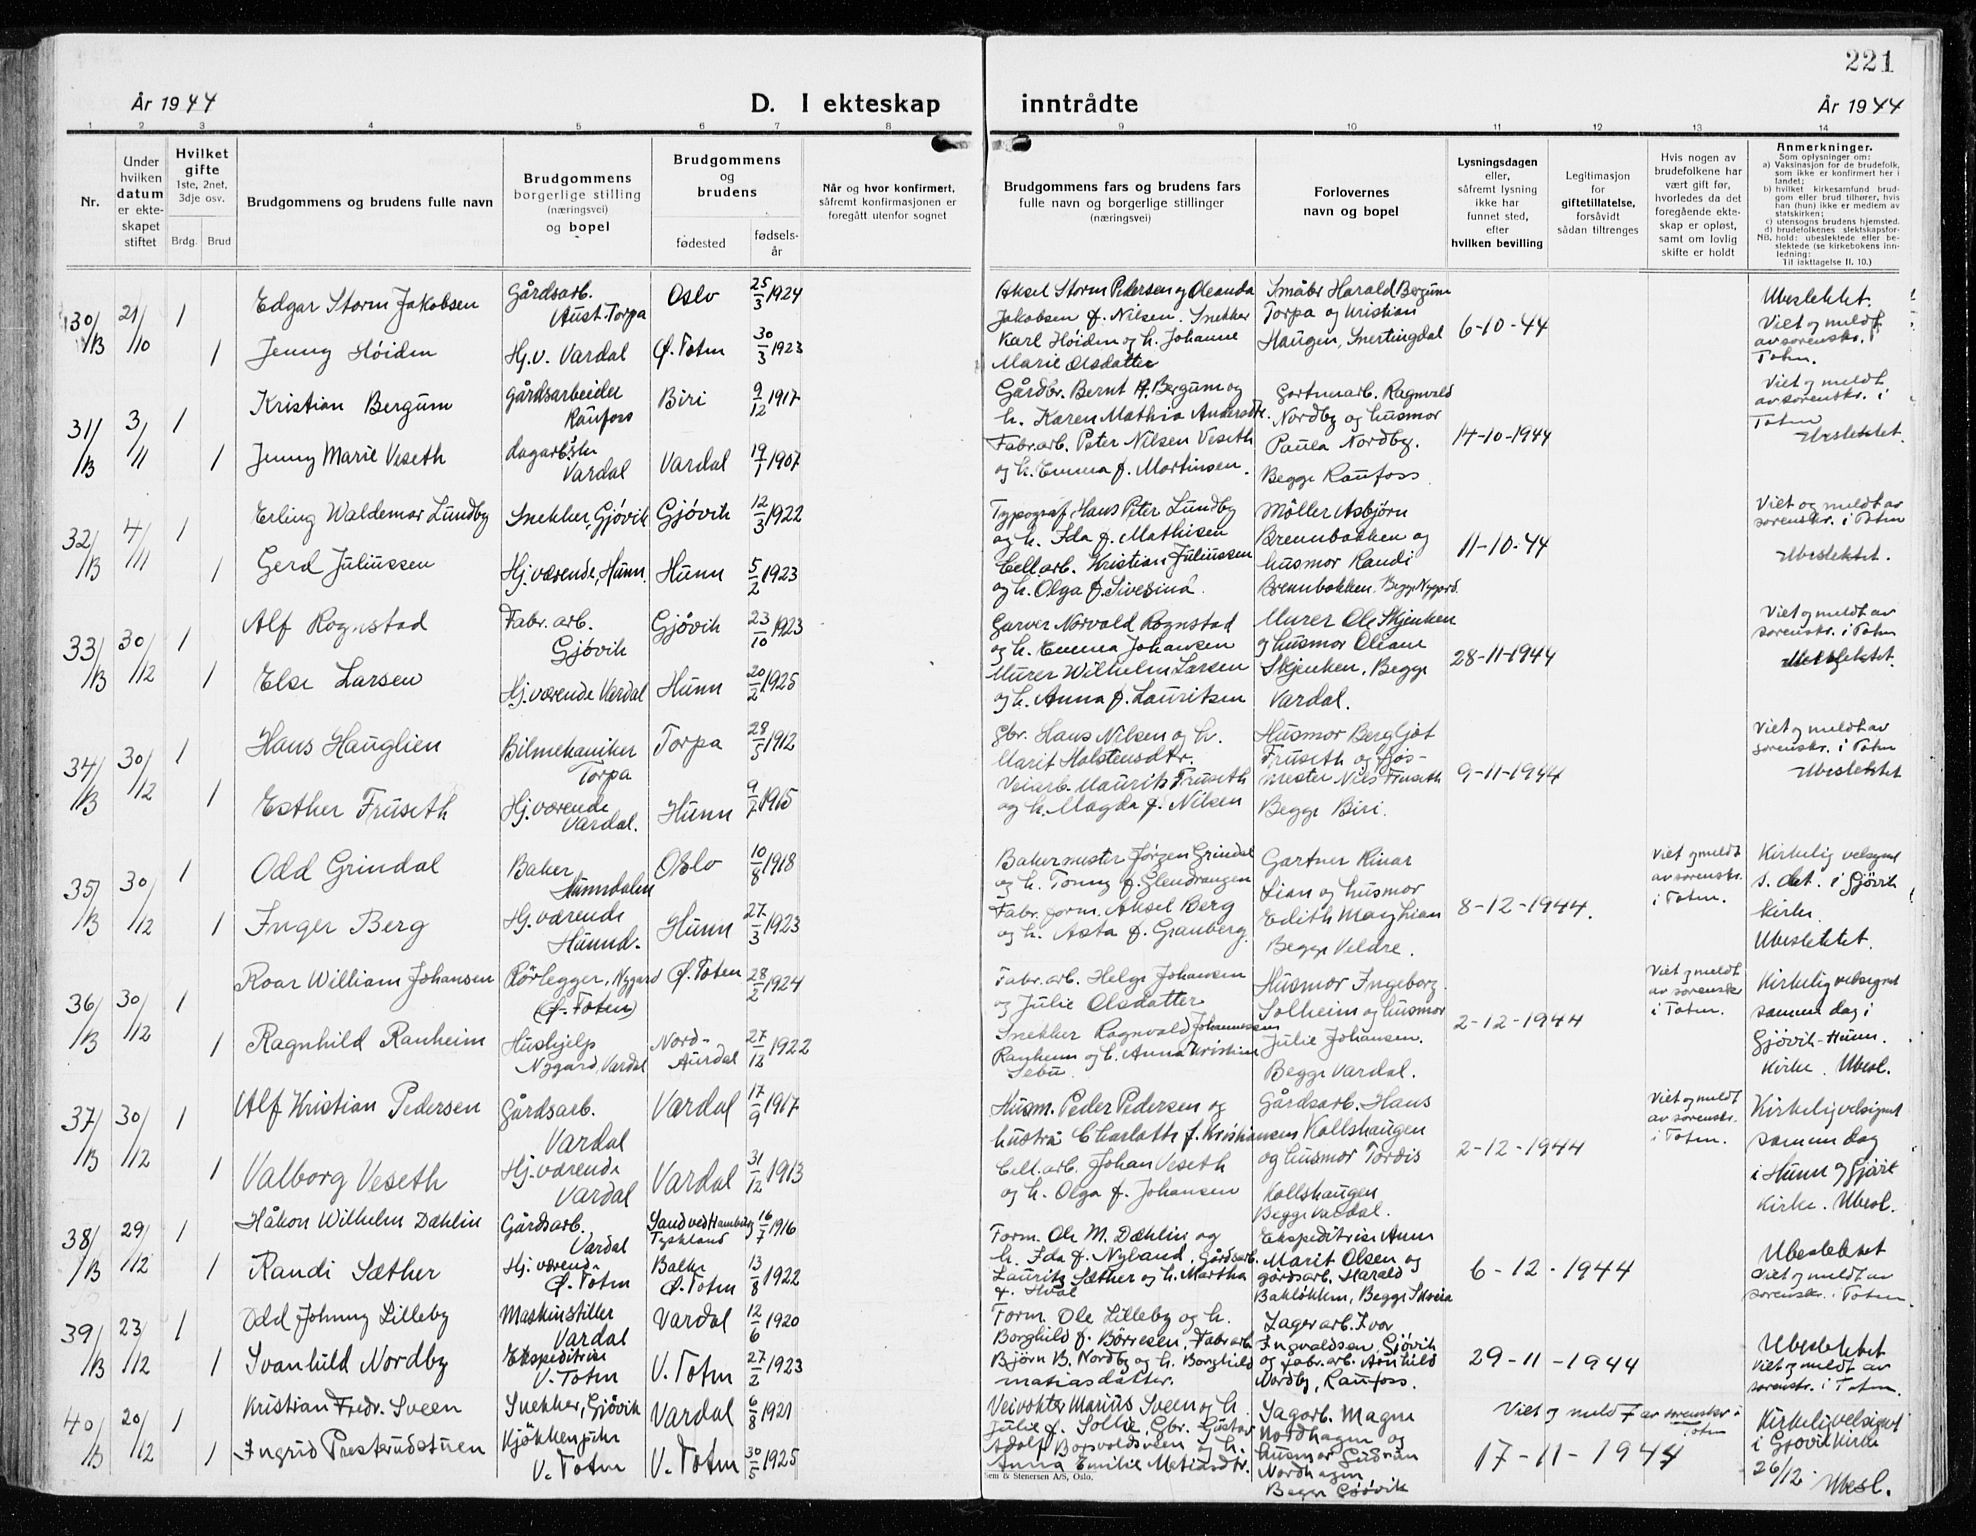 221
År 1944
D. I ekteskap inntrådte
År 1944
1 2 3 4 5 6 7 8 9 10 11 12 13 14
Nr.
Under hvilken datum er ekteskapet stiftet
Hvilket gifte
1ste, 2net, 3dje osv.
Brdg. Brud
Brudgommens og brudens fulle navn
Brudgommens borgerlige stilling (næringsvei) og bopel
Brudgommens og brudens
fødested
fødselsår
Når og hvor konfirmert, såfremt konfirmasjonen er foregått utenfor sognet
Brudgommens fars og brudens fars fulle navn og borgerlige stillinger (næringsvei)
Forlovernes navn og bopel
Lysningsdagen eller, såfremt lysning ikke har funnet sted, efter hvilken bevilling
Legitimasjon for giftetillatelse, forsåvidt sådan tiltrenges
Hvis nogen av brudefolkene har vært gift før, hvorledes da det foregående ekteskap er opløst, samt om lovlig skifte er holdt
Anmerkninger.
Som oplysninger om:
a) Vaksinasjon for de brudefolk, som ikke er konfirmert her i landet;
b) hvilket kirkesamfund brudgom eller brud tilhører, hvis han (hun) ikke er medlem av statskirken;
c) utensogns brudens hjemsted.
d) brudefolkenes slektskapsforhold: ubeslektede eller beslektede (se kirkebokens innledning:
NB. Til iakttagelse II. 10.)
30/B 21/10 1 Edgar Storm Jakobsen Gårdsarb. Aust-Torpa Oslo 25/3 1924
1 Jenny Høiden Hj.v. Vardal Ø. Toten 30/3 1923
Aksel Storm Pedersen og Oleanda
Jakobsen f. Nilsen. Snekker
Karl Høiden og h. Johanne
Marie Olsdatter
Småbr Harald Bergum
Torpa og Kristian
Haugen, Snertingdal
6-10-44
Ubeslektet.
Viet og meldt
av sorenskr. i
Toten.
31/B 3/11 1 Kristian Bergum Gårdsarbeider Raufoss Biri 9/12 1917
1 Jenny Marie Veseth dagarb.ske Vardal Vardal 19/1 1907
Gårdbr. Bernt A. Bergum og
h. Karen Mathia Andersdtr.
Fabr.arb. Peter Nilsen Veseth
og h. Emma f. Mortinsen.
Gartnerarb. Ragnvald
Nordby og husmor
Paula Nordby.
Begge Raufoss
14-10-1944
Viet og meldt
av sorenskr. i
Toten
Ubeslektet.
32/B 4/11 1 Erling Waldemar Lundby Snekker, Gjøvik Gjøvik 12/3 1922
1 Gerd Juliussen Hj.værende, Hunn. Hunn 5/2 1923
Typograf Hans Peter Lundby
og h. Ida f. Mathisen
Cell.arb. Kristian Juliussen
og h. Olga f. Sivesina.
Møller Asbjørn
Brennbakken og
husmor Randi
Brennbakken. Begge Nygard
11-10-44
Viet og meldt av
sorenskr. i Toten
Ubeslektet.
33/B 30/12 1 Alf Rognstad Fabr. arb. Gjøvik Gjøvik 23/10 1923
1 Else Larsen Hj.værende Vardal Hunn 20/2 1925
Garver Norvald Rognstad
og h. Emma Johansen
Murer Wilhelm Larsen
og h. Anna f. Lauritsen
Murer Ole Skjenken
og husmor Oleane
Skjenken, Begge
Vardal.
28-11-1944
Viet og meldt av
sorenskr. i Toten
Ubeslektet.
34/B 30/12 1 Hans Hauglien Bilmekaniker Torpa Torpa 28/5 1912
1 Esther Fruseth Hj.værende Vardal. Hunn 9/7 1915
Gbr. Hans Nilsen og h.
Marit Halstensdtr.
Veiarb. Maurits Fruseth
og h. Magda f. Nilsen
Husmor Bergljot
Fruseth og fjøs-
mester Nils Fruseth
Begge Biri.
9-11-1944
Viet og meldt av
sorenskr. i Toten
Ubeslektet
35/B 30/12 1 Odd Grindal Baker Hunndalen Oslo 10/8 1918
1 Inger Berg Hj.værende Hunnd. Hunn 27/3 1923
Bakermester Jørgen Grindal
og h. Tonny f. Glendrangen
Fabr. form. Aksel Berg
og h. Asta f. Granberg.
Gartner Einar
Lian og husmor
Edith Mary Lian
Begge Veldre.
8-12-1944.
Viet og meldt
av sorenskr.
i Toten.
Kirkelig velsignet
s. det. i Gjøvik
kirke.
Ubeslektet.
36/B 30/12 1 Roar William Johansen Rørlegger, Nygard (Ø. Toten) Ø. Toten 28/2 1924
1 Ragnhild Ranheim Hushjelp Nygard, Vardal Nord-Aurdal 27/12 1922
Fabr. arb. Helge Johansen
og Julie Olsdatter
Snekker Ragnvald Johannessen
Ranheim og h. Anna Kristine
Sebu.
Husmor Ingeborg
Solheim og husmor
Julie Johansen.
Begge Vardal.
2-12-1944
Viet og meldt
av sorenskr
i Toten.
Kirkelig velsignet
samme dag i
Gjøvik-Hunn.
Kirke. Ubesl.
37/B 30/12 1 Alf Kristian Pedersen Gårdsarb. Vardal Vardal 17/9 1917
1 Valborg Veseth Hj.værende Vardal Vardal 31/12 1913
Husm. Peder Pedersen og
hustru Charlotte f. Kristiansen
Cell.arb. Johan Veseth
og h. Olga f. Johansen
Gårdsarb. Hans
Kollshaugen
og husmor Tordis
Kollshaugen
Begge Vardal.
2-12-1944
Viet og meldt
av sorenskr.
i Toten.
Kirkelig velsignet
samme dag
i Hunn og Gjøvik
Kirke. Ubesl.
38/B 29/12 1 Håkon Wilhelm Dæhlin Gårdsarb. Vardal Sand ved Hamburg Tyskland 16/7 1916
1 Randi Sæther Hj. værende Ø. Toten Balke Ø. Toten 13/8 1922
Form. Ole M. Dæhlin og
h. Ida f. Nyland. Gårdsarb.
Laurits Sæther og h. Martha
f. Hval
Ekspeditrise Anne
Marit Olsen og
gårdsarb. Harald
Bakløkken, Begge Skreia
6-12-1944
Ubeslektet
Viet og meldt av
sorenskr. i Toten.
39/B 23/12 1 Odd Johnny Lilleby Maskinstiller Vardal Vardal 12/6 1920
1 Svanhild Nordby Ekspeditrise V. Toten V. Toten 27/2 1923
Form. Ole Lilleby og h.
Borghild f. Børresen, Fabr.arb.
Bjørn B. Nordby og h. Borghild
matiasdatter.
Lagerarb. Ivar
Ingvaldsen, Gjøvik
og fabr.arb. Arnhild
Nordby, Raufoss.
29-11-1944
Ubeslektet
Viet og meldt av
sorenskr. i Toten.
40/B 20/12 1 Kristian Fredr. Sveen Snekker, Gjøvik Vardal 6/8 1921
1 Ingrid Presterudstuen Kjøkkenpike V. Toten V. Toten 30/5 1925
Veivokter Marius Sveen og h.
Julie f. Sollie, Gbr. Gustav
Adolf og h.
Anna Emilie Matiasdtr.
Sagarb. Magne
Nordhagen og
husmor Gudrun
Nordhagen
Begge Gjøvik
Viet og meldt av sorenskr i
Toten
17-11-1944
Kirkelig velsignet
i Gjøvik kirke
26/12. Ubesl.
Sem & Stenersen A/S, Oslo.